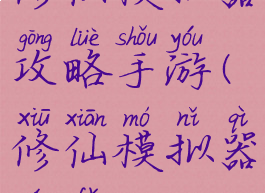 gōng lüè shǒu yóu
攻略手游(
xiū xiān mó nǐ qì
修仙模拟器